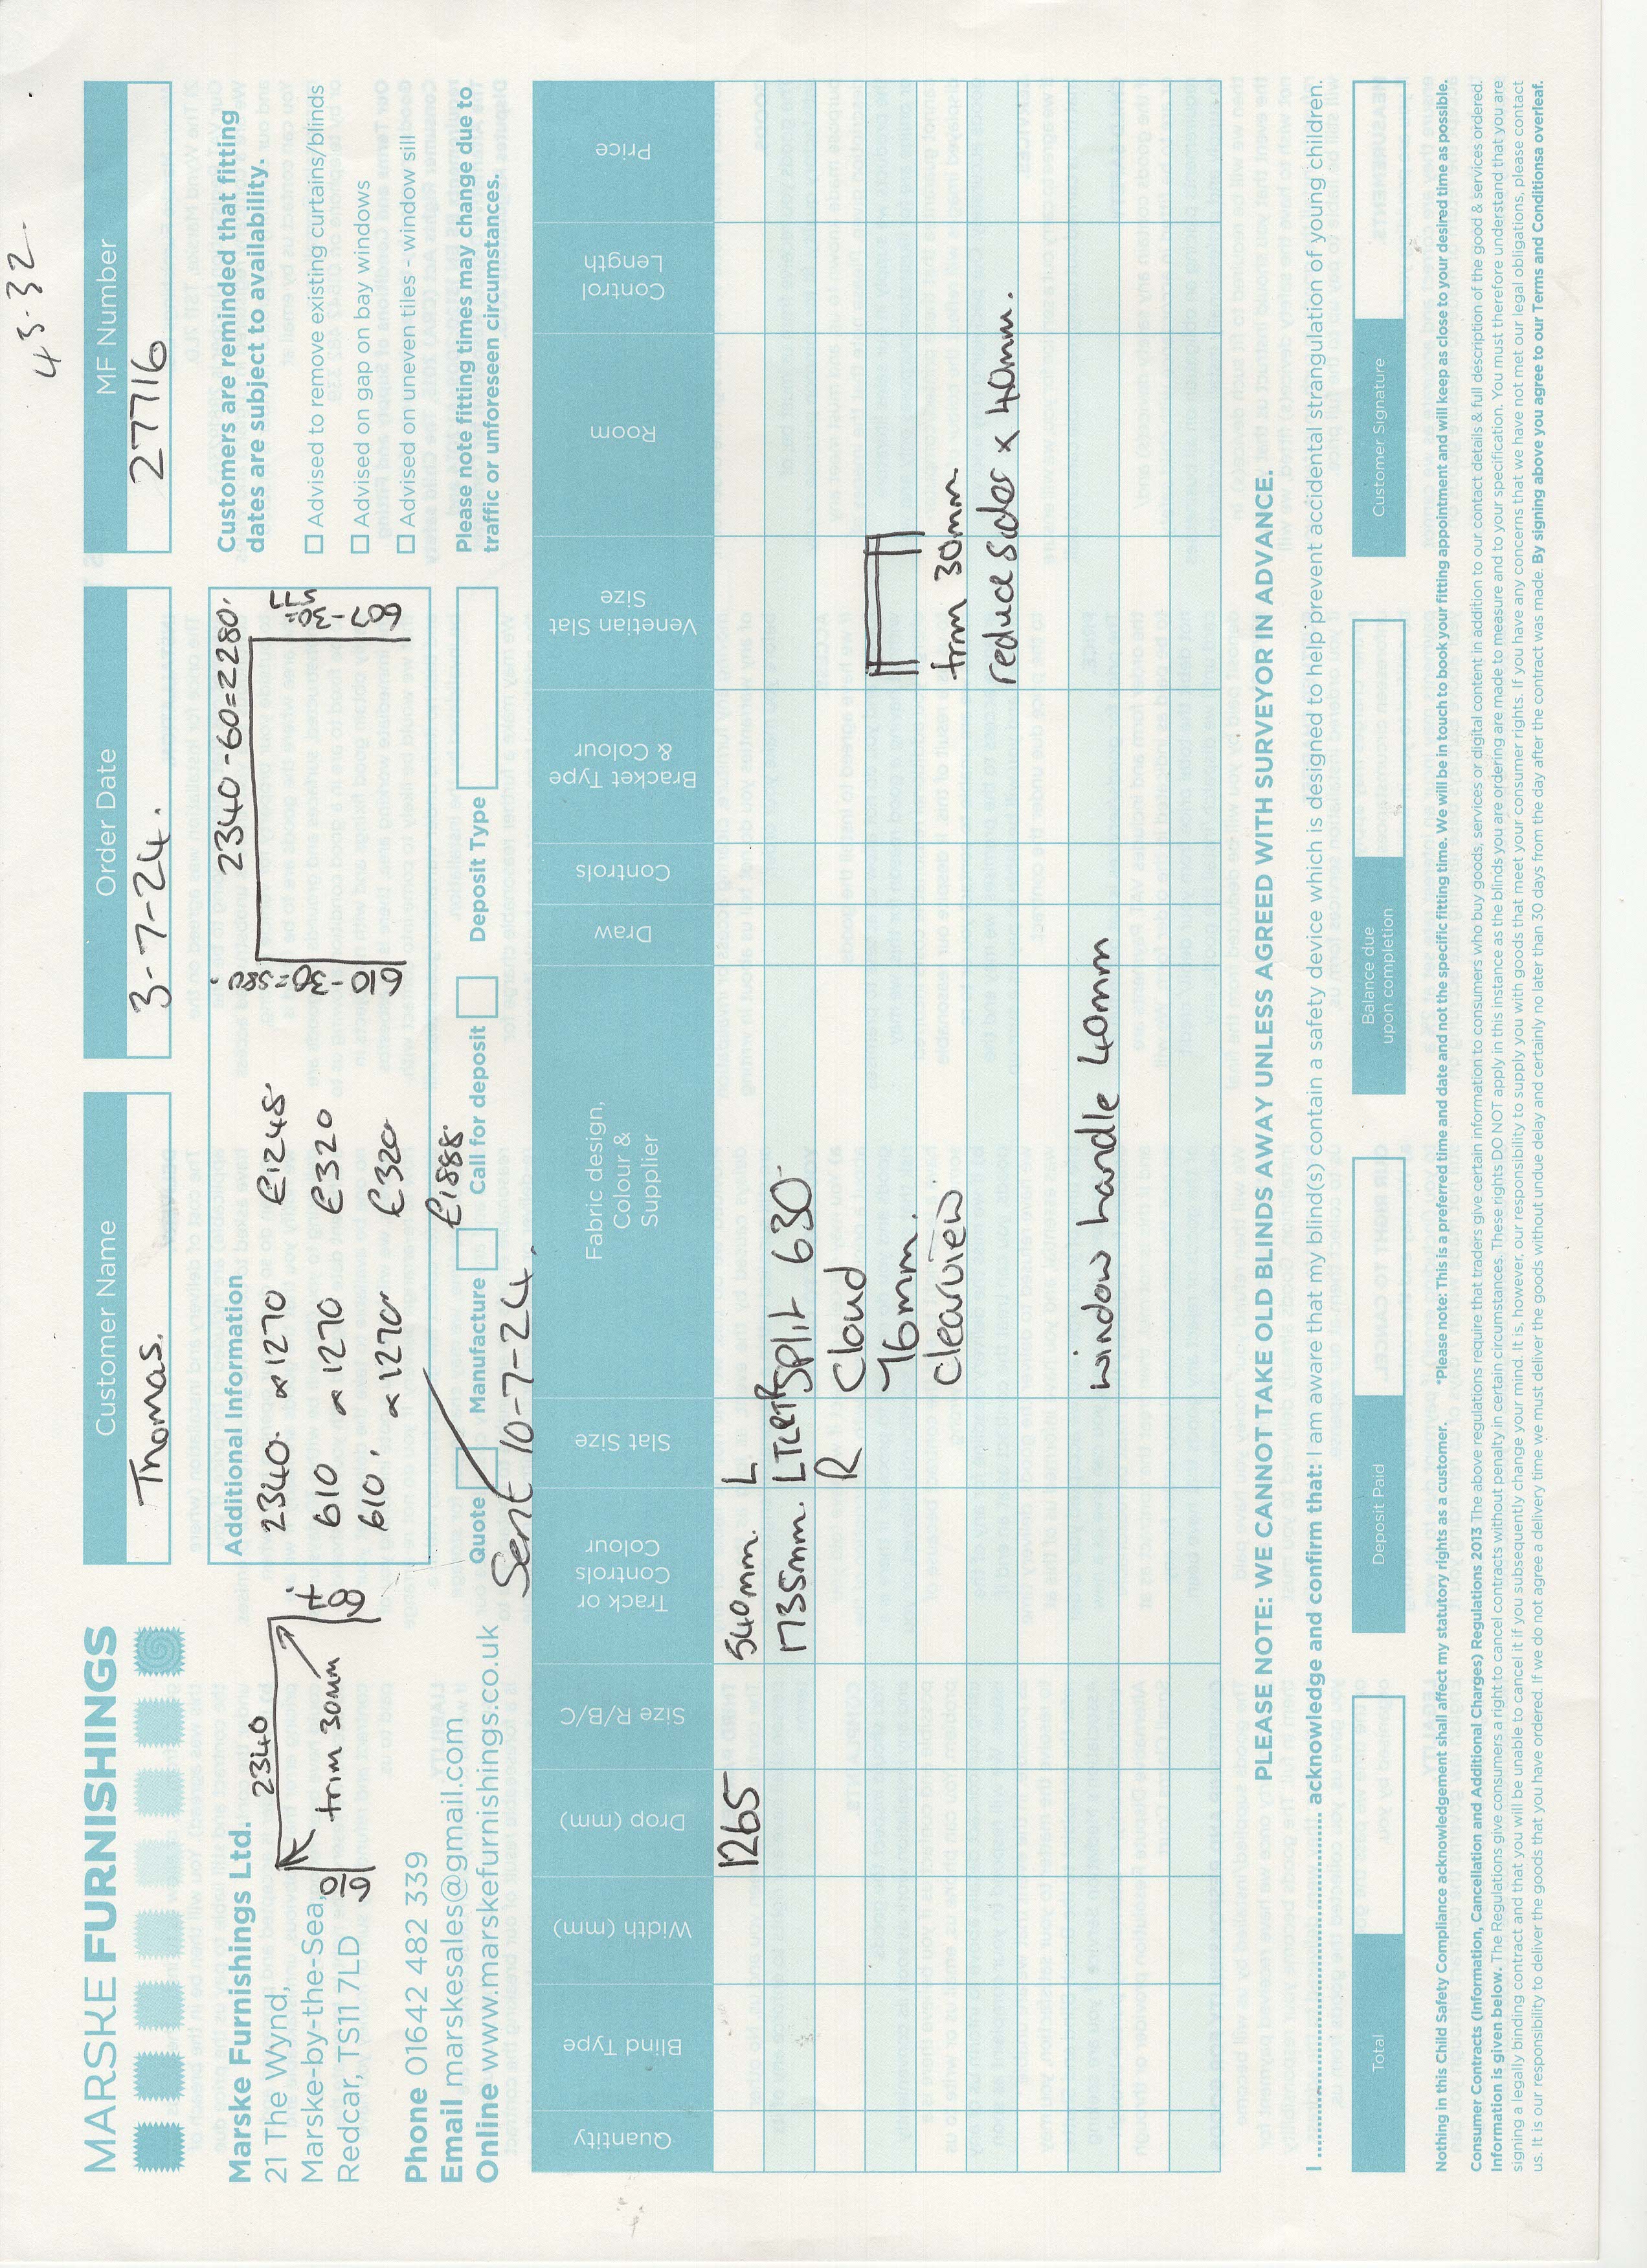 43-32.
MARSKE FURNISHINGS
Marske Furnishings Ltd.
21 The Wynd,
Marske-by-the-Sea,
Redcar, TS11 7LD
Phone 01642 482 339
Email marskesales@gmail.com
Online www.marskefurnishings.co.uk
2340
trim 30mm
610
Customer Name
Thomas.
Order Date
3-7-24.
MF Number
27716
Additional Information
2340 x 1270 £1248
610 x 1270 £320
610 x 1270 £320
£1888
2340-60=2280.
610-30=580.
607-30=
577
Customers are reminded that fitting
dates are subject to availability.
Advised to remove existing curtains/blinds
Advised on gap on bay windows
Advised on uneven tiles - window sill
Please note fitting times may change due to
traffic or unforeseen circumstances.
Quote
Manufacture
Call for deposit
Deposit Type
Sent 10-7-24.
Quantity
Blind Type
Width (mm)
Drop (mm)
Size R/B/C
Track or
Controls
Colour
Slat Size
Fabric design,
Colour &
Supplier
Draw
Controls
Bracket Type
& Colour
Venetian Slat
Size
Room
Control
Length
Price
1265 540mm. L
1735mm. LTLRTR SPlit 630
R Cloud
76mm.
Clearview
trim 30mm
reduce sides x 40mm.
window handle 40mm
PLEASE NOTE: WE CANNOT TAKE OLD BLINDS AWAY UNLESS AGREED WITH SURVEYOR IN ADVANCE.
I ........ acknowledge and confirm that: I am aware that my blind(s) contain a safety device which is designed to help prevent accidental strangulation of young children.
Total
Deposit Paid
Balance due
upon completion
Customer Signature
Nothing in this Child Safety Compliance acknowledgement shall affect my statutory rights as a customer. *Please note: This is a preferred time and date and not the specific fitting time. We will be in touch to book your fitting appointment and will keep as close to your desired time as possible.
Consumer Contracts (Information, Cancellation and Additional Charges) Regulations 2013 The above regulations require that traders give certain information to consumers who buy goods, services or digital content in addition to our contact details & full description of the good & services ordered.
Information is given below. The Regulations give consumers a right to cancel contracts without penalty in certain circumstances. These rights DO NOT apply in this instance as the blinds you are ordering are made to measure and to your specification. You must therefore understand that you are
signing a legally binding contract and that you will be unable to cancel it if you subsequently change your mind. It is, however, our responsibility to supply you with goods that meet your consumer rights. If you have any concerns that we have not met our legal obligations, please contact
us. It is our responsibility to deliver the goods that you have ordered. If we do not agree a delivery time we must deliver the goods without undue delay and certainly no later than 30 days from the day after the contract was made. By signing above you agree to our Terms and Conditionsa overleaf.